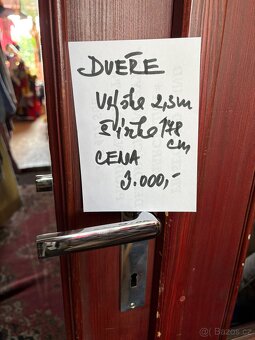 DVEŘE
Výška 2,3m
Šířka 178
cm
CENA
3.000,-
© Bazos.cz